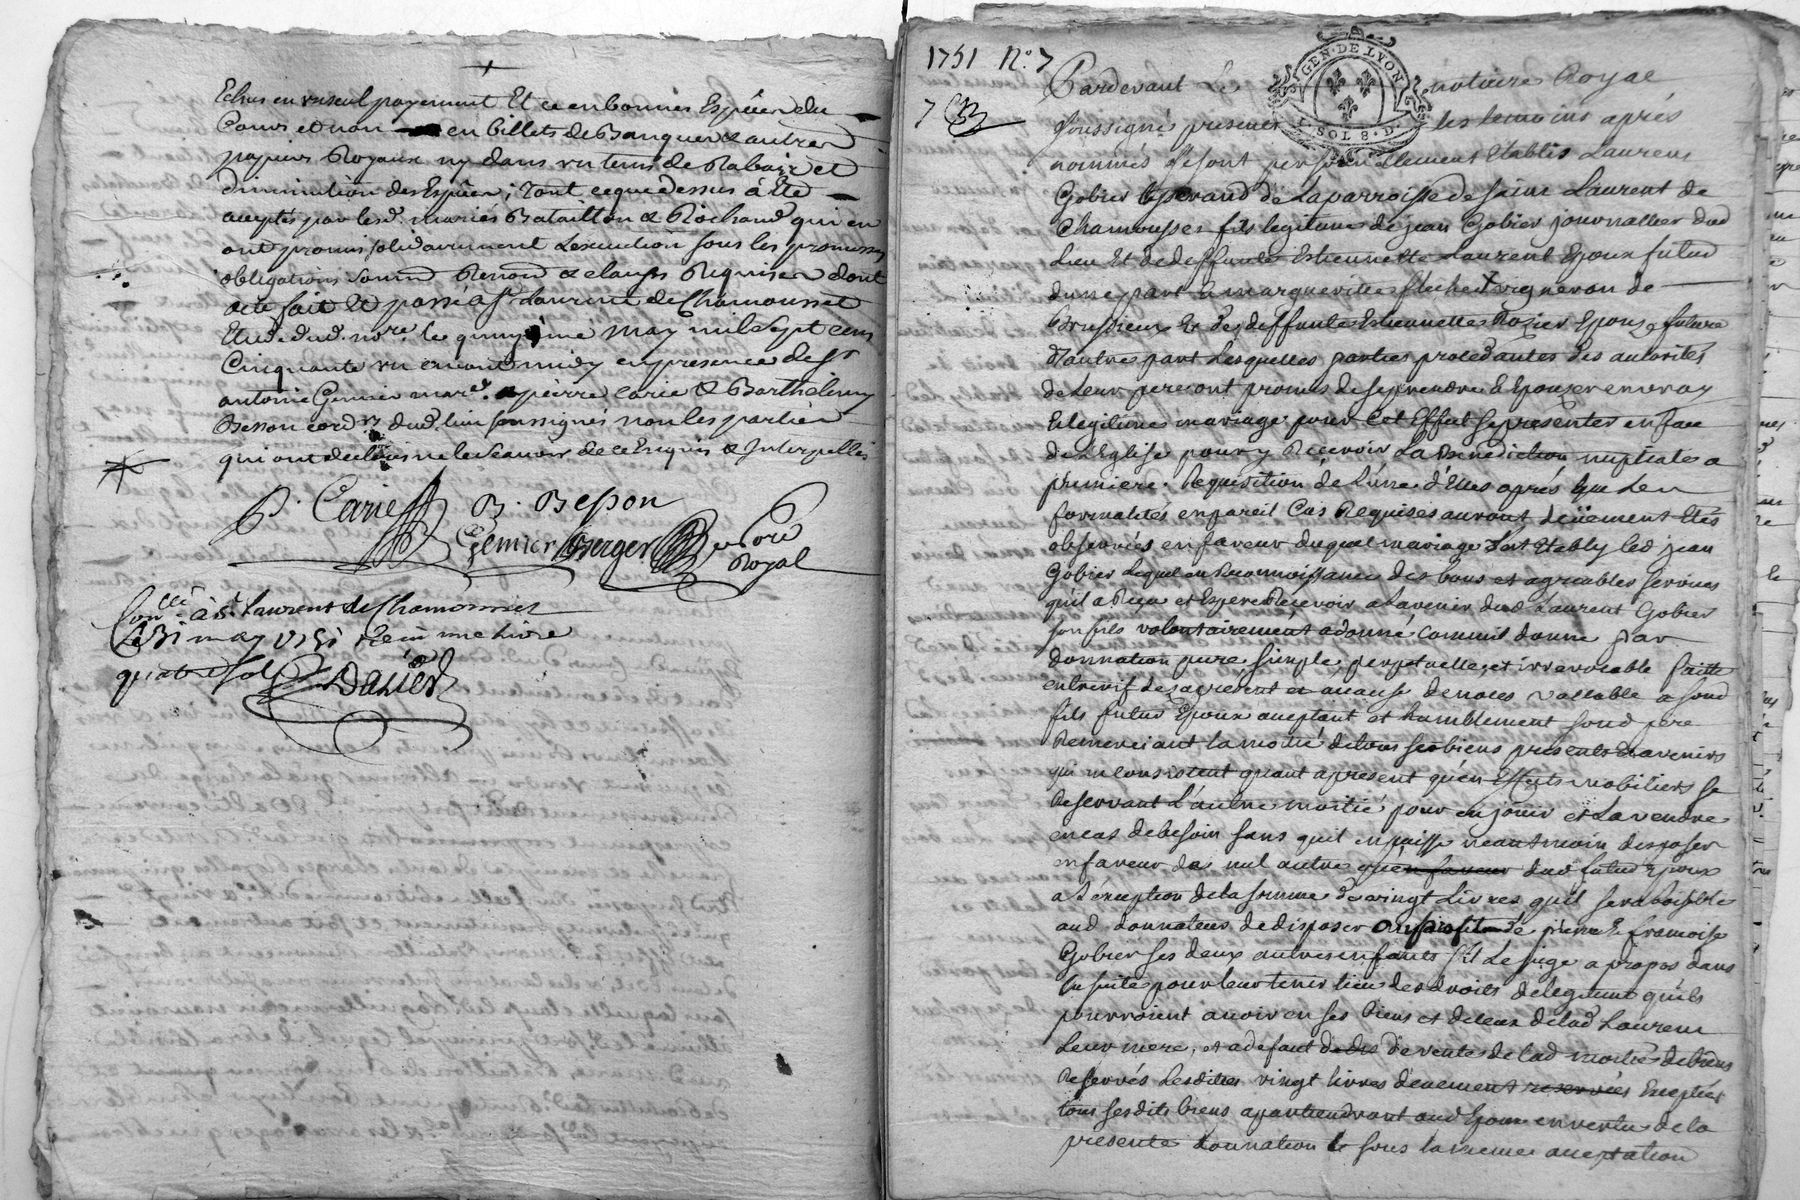 Echus en un seul payement Et ce en bonnes Espèces du
Cours et non en billets de Banque & autres
papiers Royaux ny dans un tems de Rabaix et
diminution des Espèces; Tout ce que dessus à Eté
accepté par lesd. mariés Batailton & Rochand qui en
ont promis solidairement L'execution sous les promesses
obligations soumd Renond & clauses Requises dont
acte fait et passé a St Laurent de Chamousset
Etude dud. nore. le quinzième may mil sept cens
Cinquante un avant midy en presence de Sr
antoine Gemier mard. pierre Carie & Barthelemy
Besson cordr dud. lieu soussignés non les parties
qui ont declaré ne le sçavoir de ce Enquis & Interpellés
P. Carie B. Besson
Gemier Berger
Royal
Conllé à St Laurent de Chamousset
Le 31 may 1751 Reçu une livre
quatre sols
1751 N.° 7
7
GEN. DE LYON
1. SOL 8. D.
Pardevant Le notaire Royal
soussigné presens les temoins aprés
nommés se sont personnellement Etablis Laurens
Gobier de La parroisse de saint Laurent de
Chamousset fils legitime de jean Gobier journallier dud
Lieu Et de deffunte Estiennette Laurent Epoux futur
d'une part & marguerite vigneron de
Brussieux & de deffunte Estiennette Rozier Epouse future
d'autre part Lesquelles parties procedantes des autorités
de Leur pere ont promis de se prendre & Epouser en vray
Et legitime mariage pour cet Effet se presenter en face
de L'Eglise pour y Recevoir La Benediction nuptiale a
premiere Requisition de L'une d'Elles aprés que Les
formalités en pareil Cas Requises auront deüement Etés
observées en faveur duquel mariage s'est Etably led jean
Gobier Lequel en Reconnoissance des bons et agreables services
qu'il a Reçu et Espere Recevoir a L'avenir dud Laurent Gobier
son fils volontairement a donné comme il donne par
donnation pure simple perpetuelle et irrevocable faitte
entre vifs a cause de noces vallable a sond
fils futur Epoux acceptant et humblement sond pere
Remerciant la moitié de tous ses biens presents & avenirs
qui ne consistent quant a present qu'en Effets mobiliers se
Reservant L'autre moitié pour en jouir et La vendre
en cas de besoin sans qu'il en puisse neantmoins disposer
en faveur de nul autre que en faveur dud futur Epoux
a L'exception de la somme de vingt Livres qu'il sera loisible
aud donnateur de disposer au profit de pierre & francoise
Gobier ses deux autres enfants s'il Le juge a propos dans
la suite pour leur tenir lieu des droits de legitime qu'ils
pourroient avoir en ses biens et de ceux de lad Laurens
Leur mere, et a defaut de vente de lad moitié de biens
Reservés Lesdittes vingt livres Exceptées
tous sesdits biens apartiendront aud Epoux en vertu de la
presente donnation & sous la meme acceptation